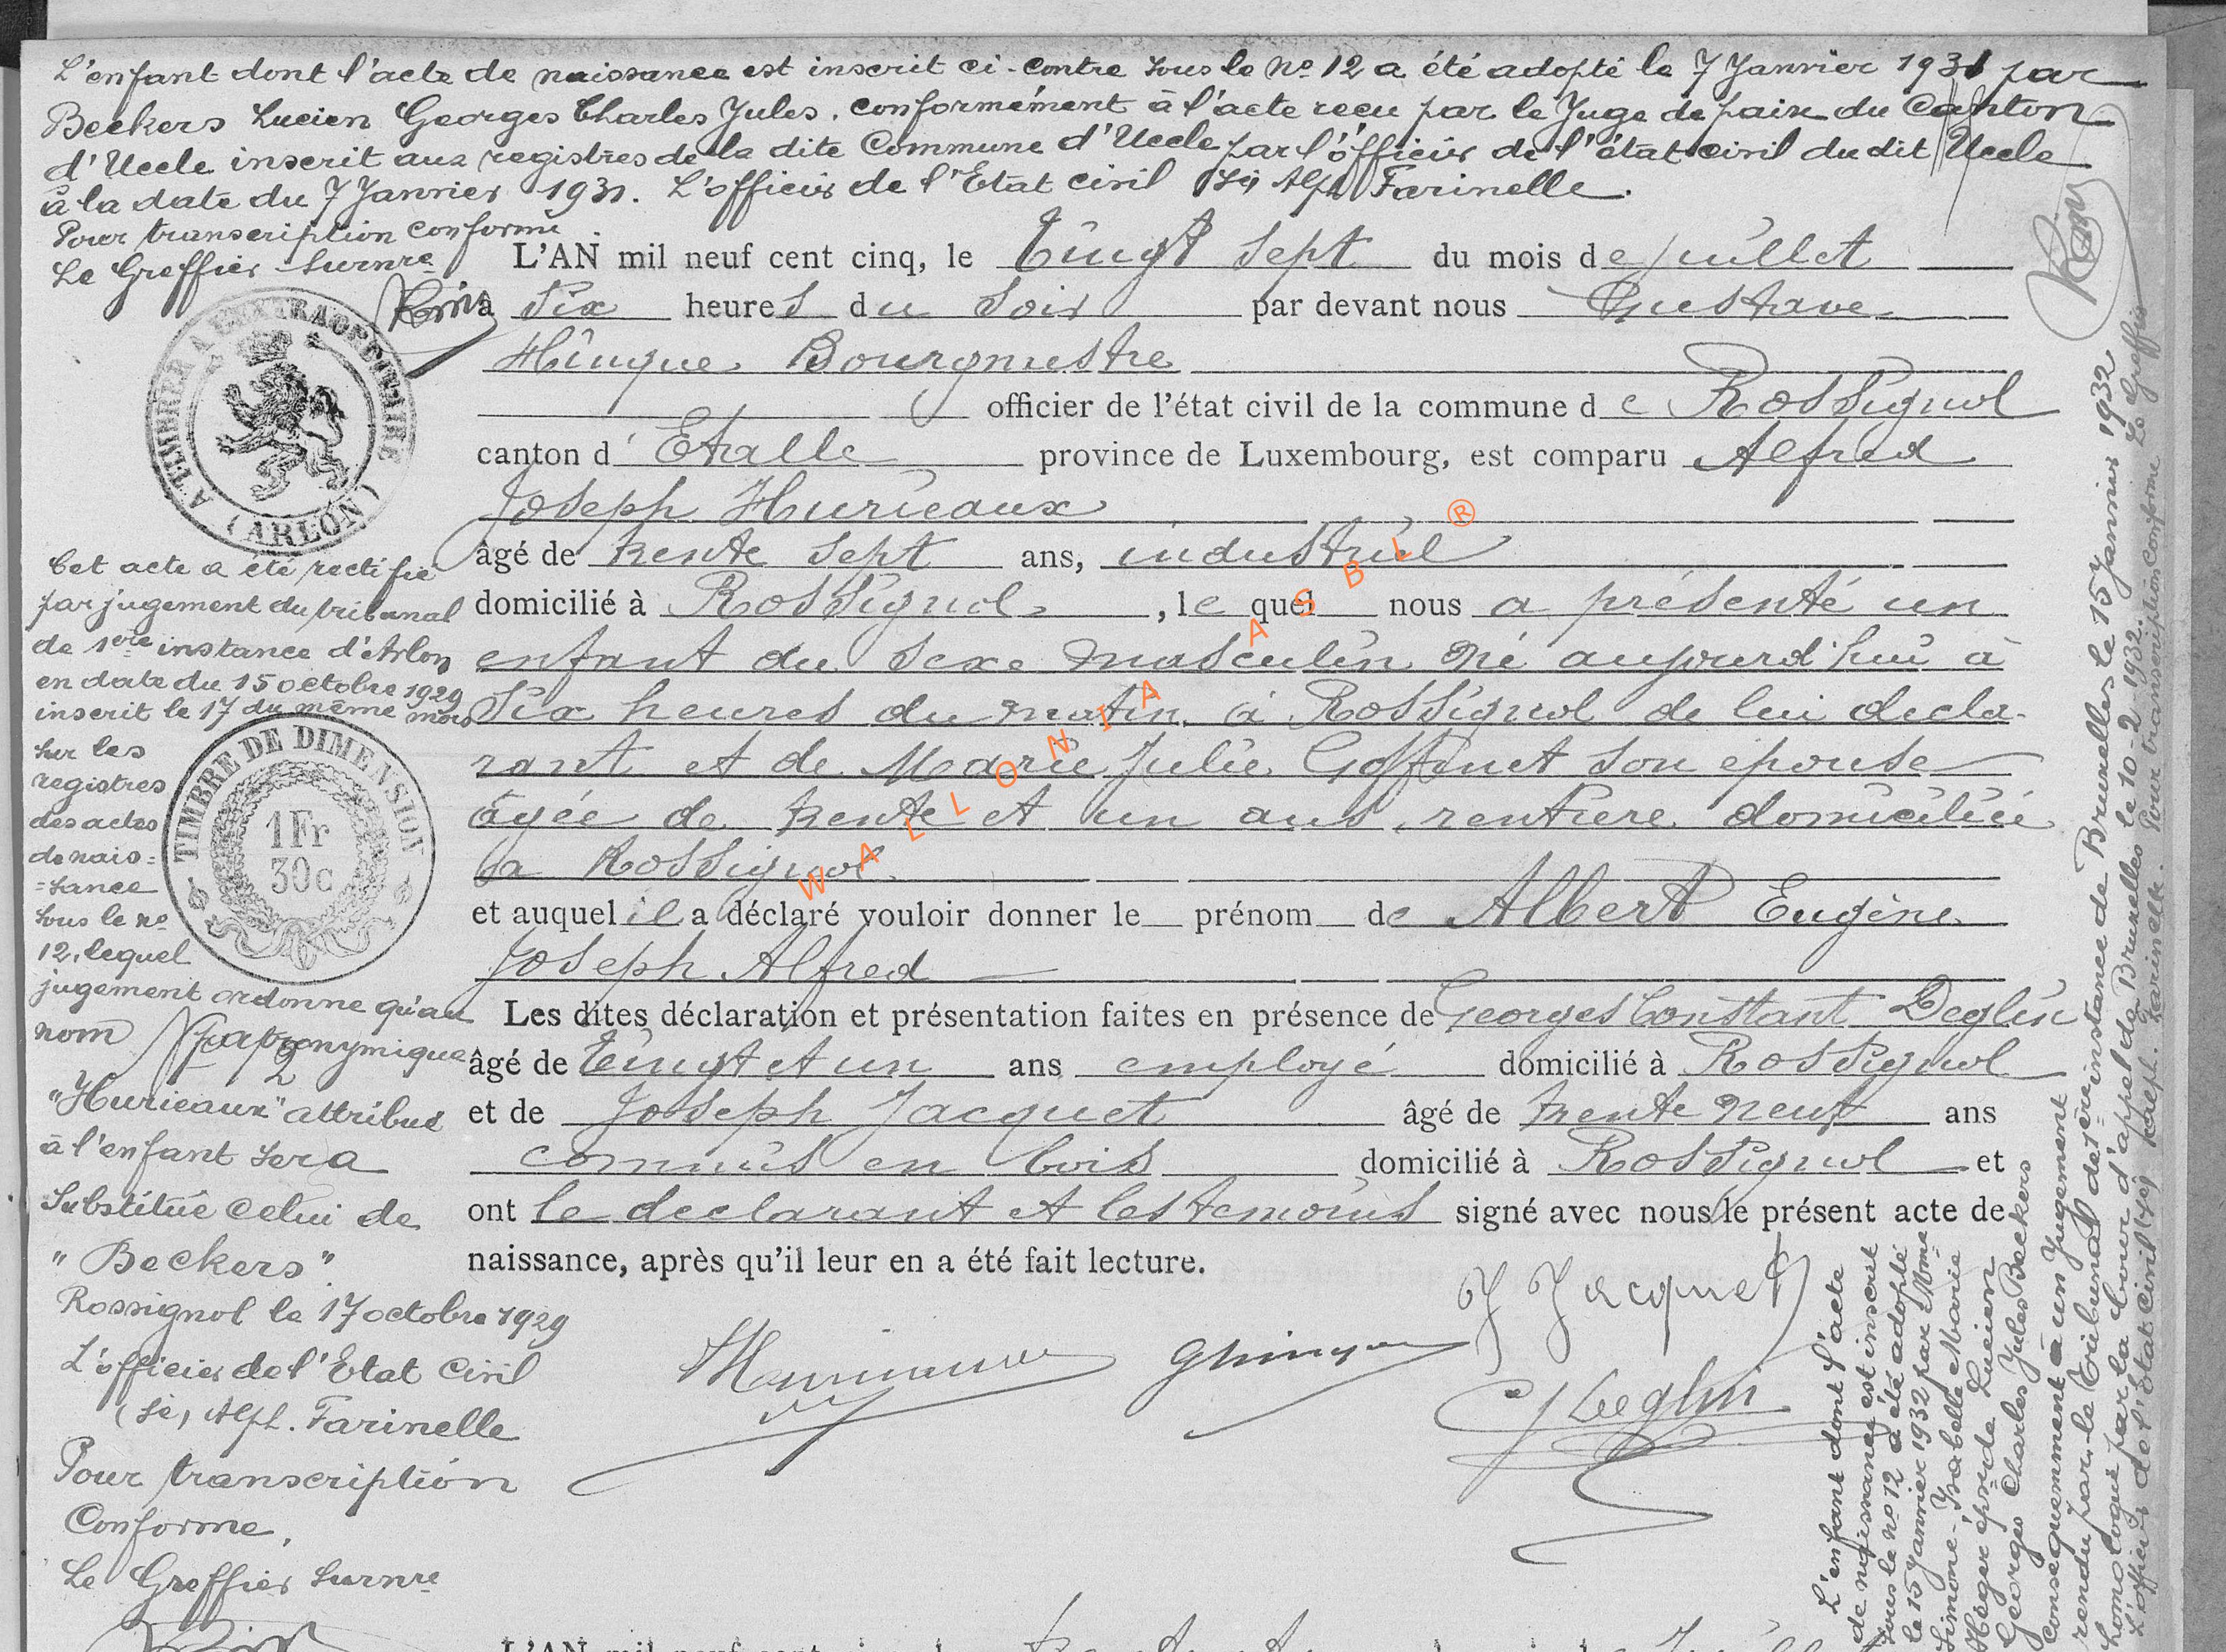 L'enfant dont l'acte de naissance est inscrit ci-contre sous le No 12 a été adopté le 7 Janvier 1931 par
Beckers Lucien Georges Charles Jules. conformément à l'acte reçu par le Juge de paix du Canton
d'Uccle inscrit aux registres de la dite Commune d'Uccle par l'officier de l'état civil du dit Uccle
à la date du 7 Janvier 1931. L'officier de l'Etat civil (sé) Alph Farinelle.
Pour transcription conforme
Le Greffier Surnre
L'AN mil neuf cent cinq, le Vingt Sept du mois de juillet
à Six heures du Soir par devant nous Gustave
Hinque Bourgmestre
officier de l'état civil de la commune de Rossignol
canton d'Etalle province de Luxembourg, est comparu Alfred
Joseph Hurieaux
âgé de trente sept ans, industriel
domicilié à Rossignol, lequel nous a présenté un
enfant du Sexe masculin né aujourd'hui à
Six heures du matin à Rossignol de lui decla-
rant et de Marie Julie Goffinet son epouse
âgée de trente et un ans, rentiere domiciliée
à Rossignol
et auquel il a déclaré vouloir donner le prénom de Albert Eugène
Joseph Alfred
Les dites déclaration et présentation faites en présence de Georges Constant Deglin
âgé de Vingt et un ans employé domicilié à Rossignol
et de Joseph Jacquet âgé de trente neuf ans
commis en bois domicilié à Rossignol et
ont le declarant et les temoins signé avec nous le présent acte de
naissance, après qu'il leur en a été fait lecture.
J Jacquet
GHinque
G Deglin
A TIMBRER A L'EXTRAORDINAIRE
(ARLON)
Cet acte a été rectifié
par jugement du tribunal
de 1ère instance d'Arlon
en date du 15 octobre 1929
inscrit le 17 du même mois
sur les
registres
des actes
de nais=
=sance
sous le no
12, lequel
jugement ordonne qu'au
nom patronymique
"Hurieaux" attribué
à l'enfant sera
Substitué celui de
"Beckers".
Rossignol le 17 octobre 1929
L'officier de l'Etat Civil
(sé) Alph. Farinelle
Pour transcription
Conforme,
Le Greffier Surnre
TIMBRE DE DIMENSION
1Fr
30c
L'enfant dont l'acte
de naissance est inscrit
sous le no 12 a été adopté
le 15 Janvier 1932 par Mme
Simone-Isabelle Marie
Héger épse de Lucien
Georges Charles Jules Beckers
conséquemment à un Jugement
rendu par le Tribunal de 1ère instance de Bruxelles le 15 Janvier 1932
homologué par la Cour d'appel de Bruxelles le 10-2-1932.
L'officier de l'Etat civil (sé) Alph. Farinelle. Pour transcription conforme Le Greffier
WALLONIA ASBL ®